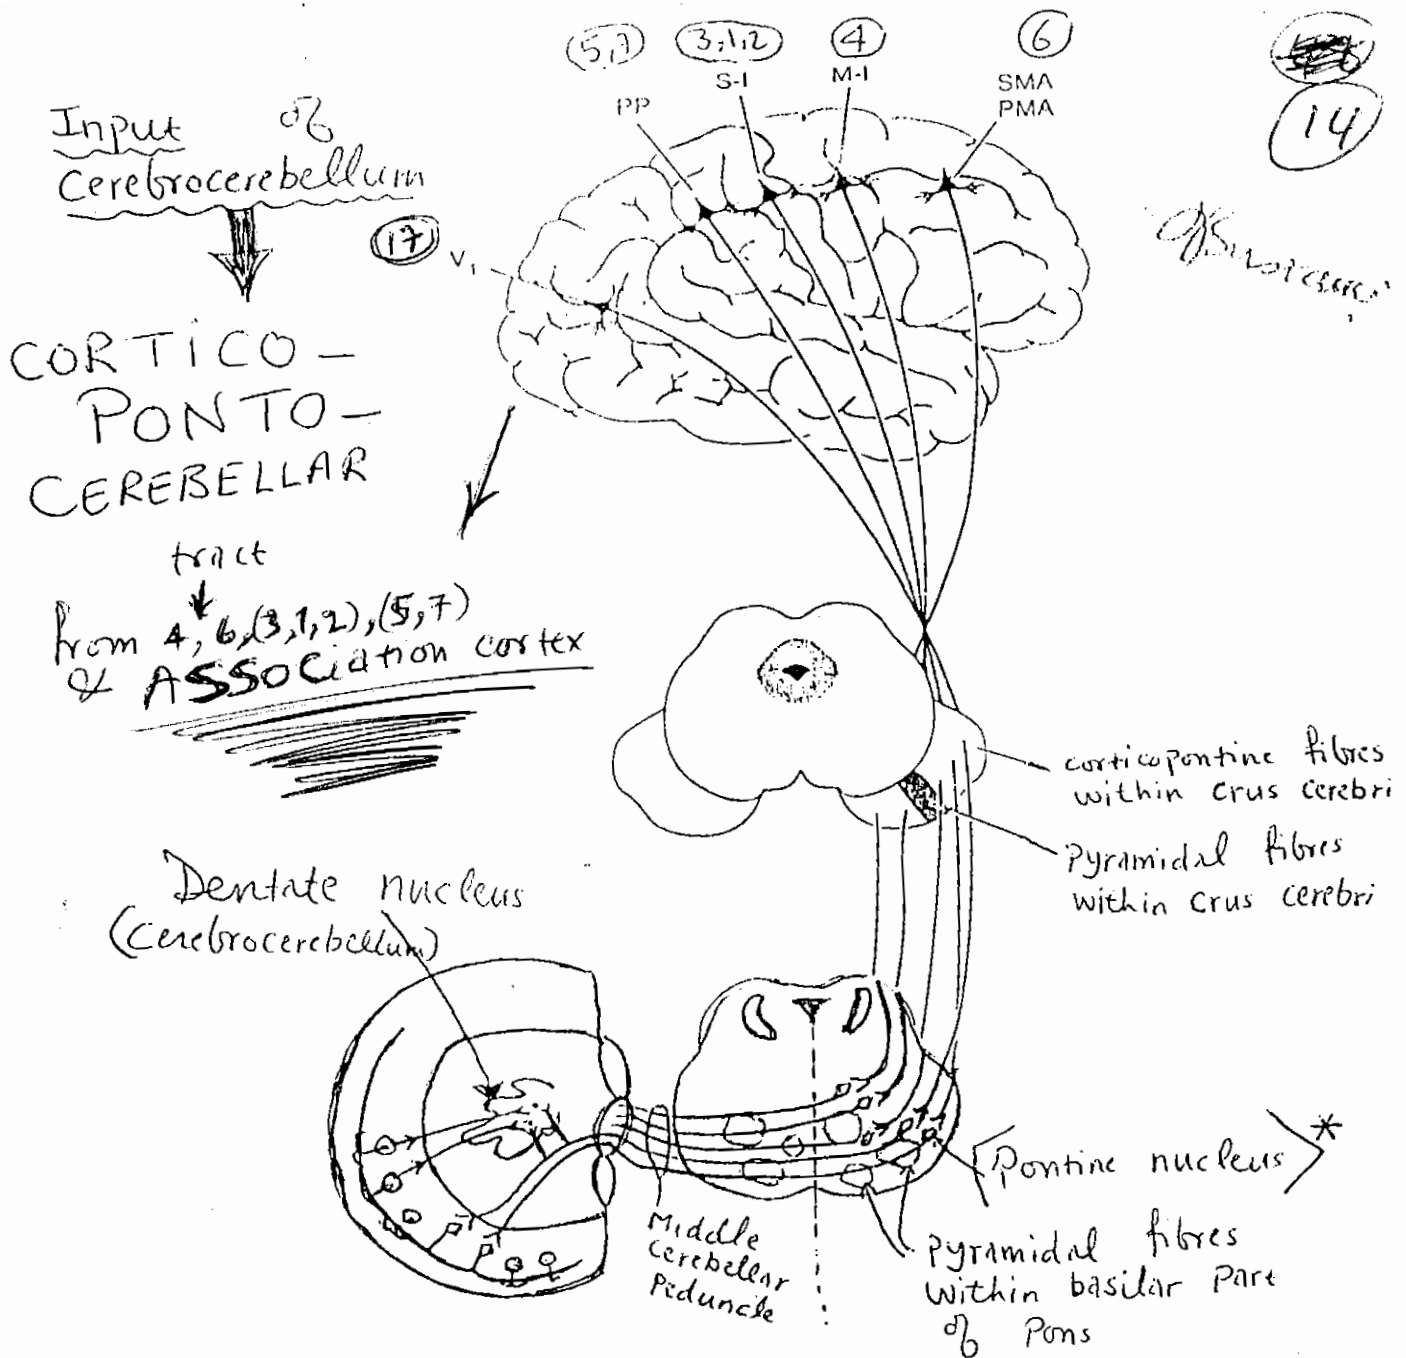 (5,7) (3,1,2) (4) (6)
PP S-I M-I SMA
PMA
14
Input of
Cerebrocerebellum
17
V1
CORTICO-
PONTO-
CEREBELLAR
tract
from 4, 6,(3,1,2),(5,7)
& ASSOCiation cortex
corticopontine fibres
within crus cerebri
pyramidal fibres
within crus cerebri
Dentate nucleus
(Cerebrocerebellum)
[Pontine nucleus]*
Middle
Cerebellar
Peduncle
pyramidal fibres
within basilar part
of Pons